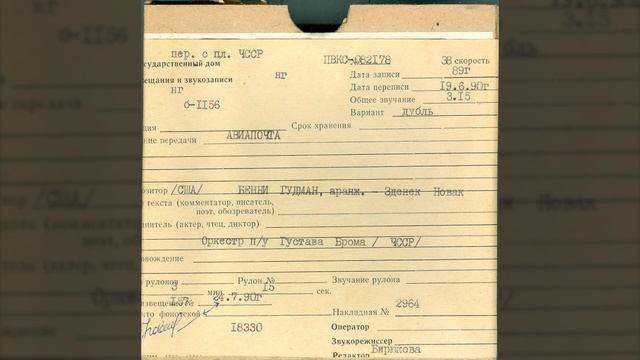 пер. с пл. ЧССР ПВКС-082178 38 скорость
сударственный дом 89г
вещания и звукозаписи нг Дата записи
нг Дата переписи 19.6.90г
6-II56 Общее звучание 3.I5
Вариант дубль
ция Срок хранения
ние передачи АВИАПОЧТА
озитор /США/ БЕННИ ГУДМАН, аранж. - Зденек Новак
текста (комментатор, писатель,
поэт, обозреватель)
нитель (актер, чтец, диктор)
Оркестр п/у Густава Брома / ЧССР/
вождение
рулонов Рулон № Звучание рулона
3 мин. I5 сек.
извещения № I57 24.7.90г
кто фонотекой Накладная № 2964
I8330 Оператор
Звукорежиссер
Редактор Бирюкова